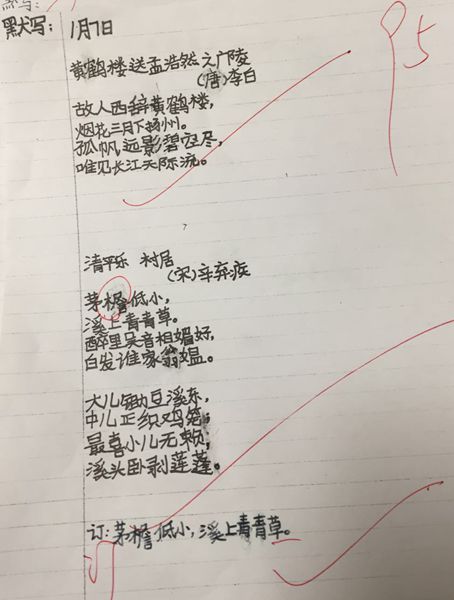 默写: 1月7日
95
黄鹤楼送孟浩然之广陵
(唐)李白
故人西辞黄鹤楼,
烟花三月下扬州。
孤帆远影碧空尽,
唯见长江天际流。
清平乐 村居
(宋)辛弃疾
茅檐低小,
溪上青青草。
醉里吴音相媚好,
白发谁家翁媪。
大儿锄豆溪东,
中儿正织鸡笼;
最喜小儿无赖,
溪头卧剥莲蓬。
订:茅檐低小,溪上青青草。